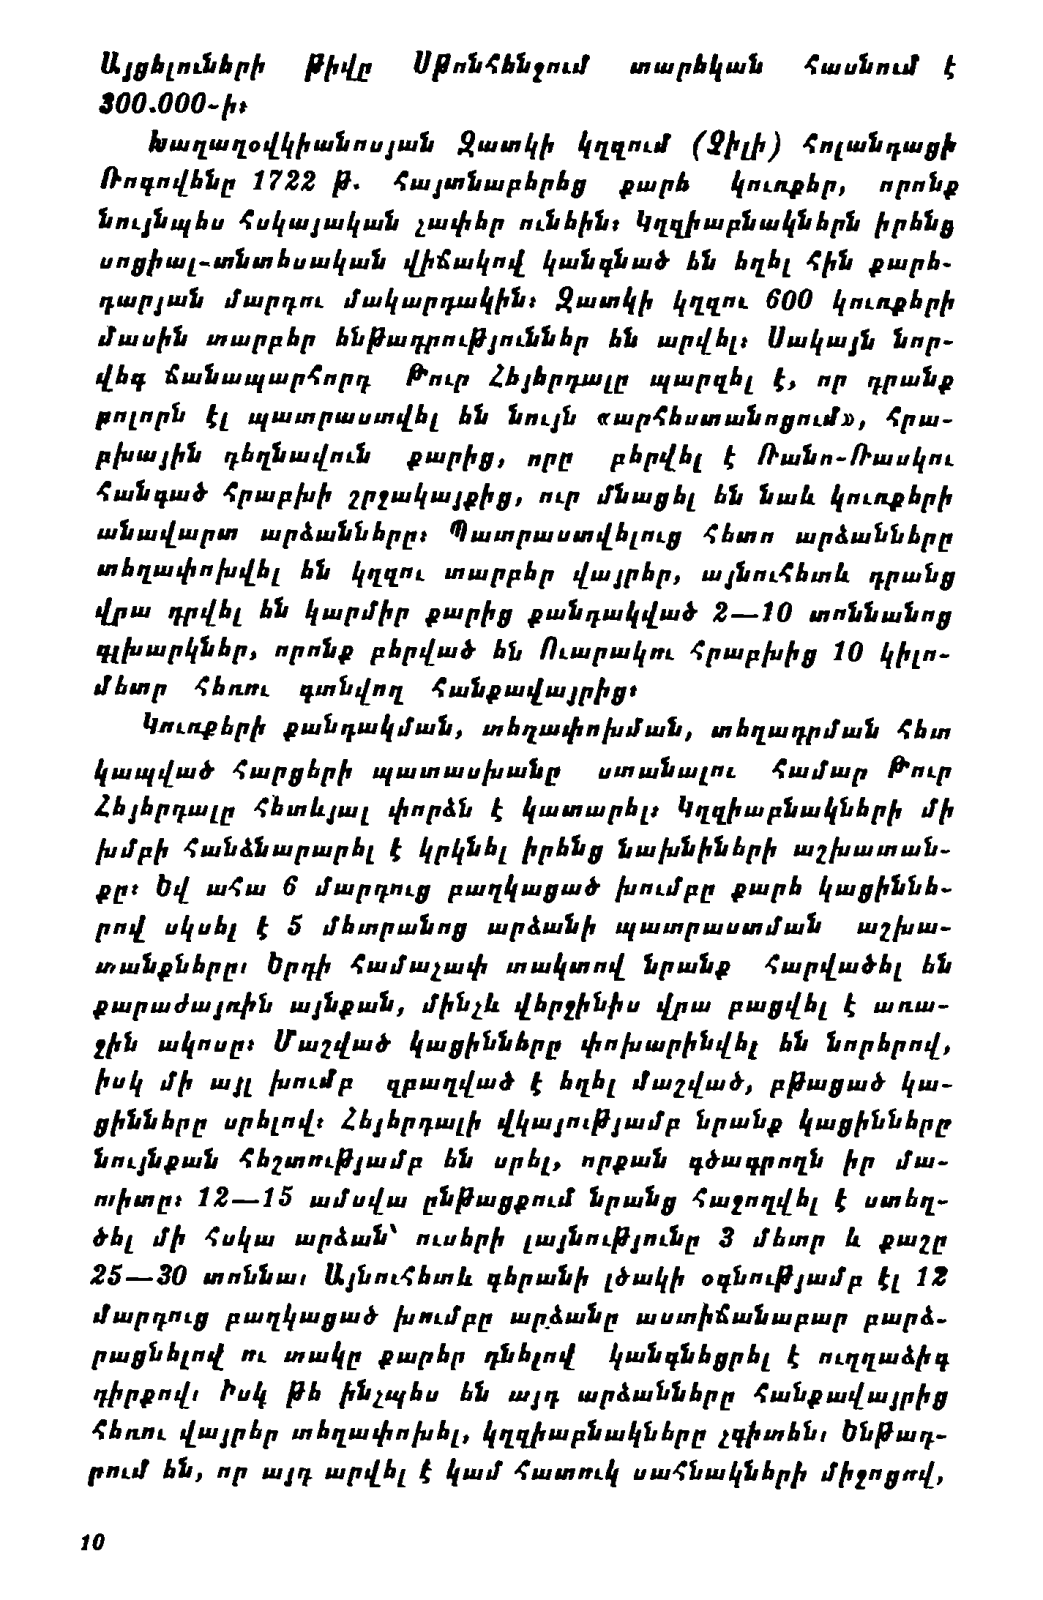 Այցելուների թիվը Սթոնհենջում տարեկան հասնում է
300.000-ի։
Խաղաղօվկիանոսյան Զատկի կղզում (Չիլի) հոլանդացի
Ռոգովենը 1722 թ. հայտնաբերեց քարե կուռքեր, որոնք
նույնպես հսկայական չափեր ունեին։ Կղզիաբնակներն իրենց
սոցիալ-տնտեսական վիճակով կանգնած են եղել հին քարե-
դարյան մարդու մակարդակին։ Զատկի կղզու 600 կուռքերի
մասին տարբեր ենթադրություններ են արվել։ Սակայն նոր-
վեգ ճանապարհորդ Թուր Հեյերդալը պարզել է, որ դրանք
բոլորն էլ պատրաստվել են նույն «արհեստանոցում», հրա-
բխային դեղնավուն քարից, որը բերվել է Ռանո-Ռասկու
հանգած հրաբխի շրջակայքից, ուր մնացել են նաև կուռքերի
անավարտ արձանները։ Պատրաստվելուց հետո արձանները
տեղափոխվել են կղզու տարբեր վայրեր, այնուհետև դրանց
վրա դրվել են կարմիր քարից քանդակված 2—10 տոննանոց
գլխարկներ, որոնք բերված են Ուարակու հրաբխից 10 կիլո-
մետր հեռու գտնվող հանքավայրից։
Կուռքերի քանդակման, տեղափոխման, տեղադրման հետ
կապված հարցերի պատասխանը ստանալու համար Թուր
Հեյերդալը հետևյալ փորձն է կատարել։ Կղզիաբնակների մի
խմբի հանձնարարել է կրկնել իրենց նախնիների աշխատան-
քը։ Եվ ահա 6 մարդուց բաղկացած խումբը քարե կացիննե-
րով սկսել է 5 մետրանոց արձանի պատրաստման աշխա-
տանքները։ Երդի համաչափ տակտով նրանք հարվածել են
քարաժայռին այնքան, մինչև վերջինիս վրա բացվել է առա-
ջին ակոսը։ Մաշված կացինները փոխարինվել են նորերով,
իսկ մի այլ խումբ զբաղված է եղել մաշված, բթացած կա-
ցինները սրելով։ Հեյերդալի վկայությամբ նրանք կացինները
նույնքան հեշտությամբ են սրել, որքան գծագրողն իր մա-
տիտը։ 12—15 ամսվա ընթացքում նրանց հաջողվել է ստեղ-
ծել մի հսկա արձան՝ ուսերի լայնությունը 3 մետր և քաշը
25—30 տոննա։ Այնուհետև գերանի լծակի օգնությամբ էլ 12
մարդուց բաղկացած խումբը արձանը աստիճանաբար բարձ-
րացնելով ու տակը քարեր դնելով կանգնեցրել է ուղղաձիգ
դիրքով։ Իսկ թե ինչպես են այդ արձանները հանքավայրից
հեռու վայրեր տեղափոխել, կղզիաբնակները չգիտեն։ Ենթադ-
րում են, որ այդ արվել է կամ հատուկ սահնակների միջոցով,
10